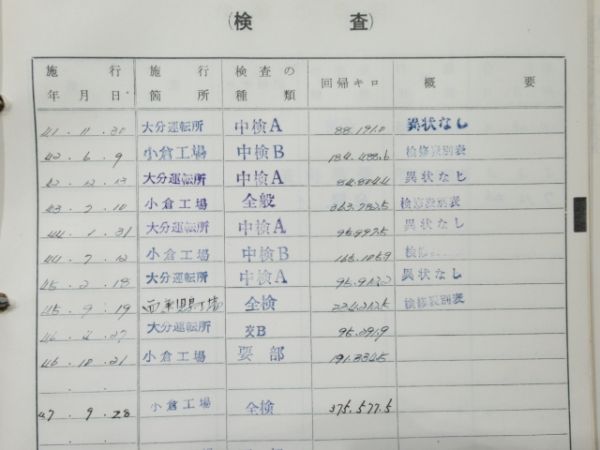 (検 査)
施行年月日 施行箇所 検査の種類 回帰キロ 概要
41.11.30 大分運転所 中検A 88.191.0 異状なし
42.6.9 小倉工場 中検B 184.488.6 検修票別表
42.12.13 大分運転所 中検A 異状なし
43.7.10 小倉工場 全般 363.782.5 検修票別表
44.1.31 大分運転所 中検A 異状なし
44.7.12 小倉工場 中検B 検修
45.2.18 大分運転所 中検A 異状なし
45.9.19 全検 検修票別表
46.4.27 大分運転所 交B 95.291.9
46.10.21 小倉工場 要部 191.334.5
47.9.28 小倉工場 全検 375.577.5